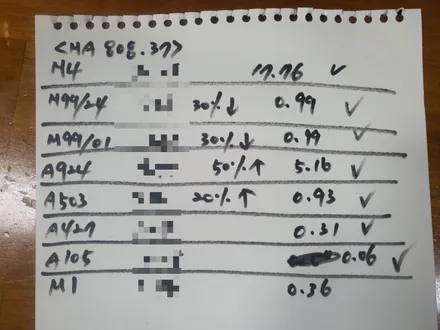 <MA 808.37>
M4 17.76 ✓
M99/24 30%↓ 0.99 ✓
M99/01 30%↓ 0.99 ✓
A924 50%↑ 5.16 ✓
A503 20%↑ 0.93 ✓
A427 0.31 ✓
A105 0.06 ✓
M1 0.36